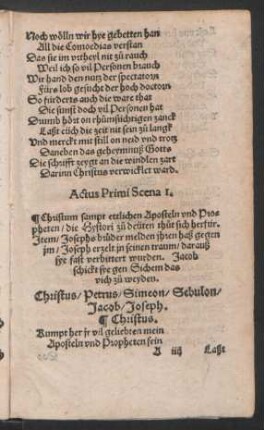 Noch wölln wir hye gebetten han
All die Comoedias verstan
Das sie im vrtheyl nit zů rauch
Weil ich so vil Personen brauch
Wir hand den nutz der spectatorn
Fürs lob gesůcht der hoch doctorn
So fürderts auch die ware that
Die sunst doch vil Personen hat
Drumb hört on rhůmsüchtigen zanck
Laßt eüch die zeit nit sein zů langk
Vnd merckt mit still on neid vnd trotz
Daneben das geheymnuß Gotts
Die schrifft zeygt an die windlen zart
Darinn Christus verwicklet ward.
Actus Primi Scena 1.
¶ Christum sampt ettlichen Aposteln vnd Pro-
pheten / die Hystori zů deüten thůt sich herfür.
Item / Josephs brüder melden jhren haß gegen
jm / Joseph erzelt jn seinen traum / darauß
sye fast verbittert wurden. Jacob
schickt sye gen Sichem das
vich zů weyden.
Christus / Petrus / Simeon / Sebulon /
Jacob / Joseph.
¶ Christus.
Kumpt her jr vil geliebten mein
Aposteln vnd Propheten sein
A iiij Laßt